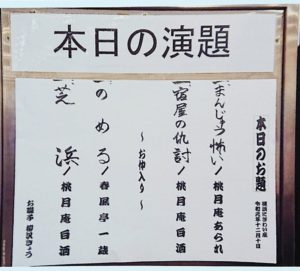 本日の演題
本日のお題
横浜にぎわい座
令和元年十二月十日
一、まんじゅう怖い/桃月庵あられ
一、宿屋の仇討/桃月庵白酒
〜お仲入り〜
一、のめる/春風亭一蔵
一、芝浜/桃月庵白酒
お囃子